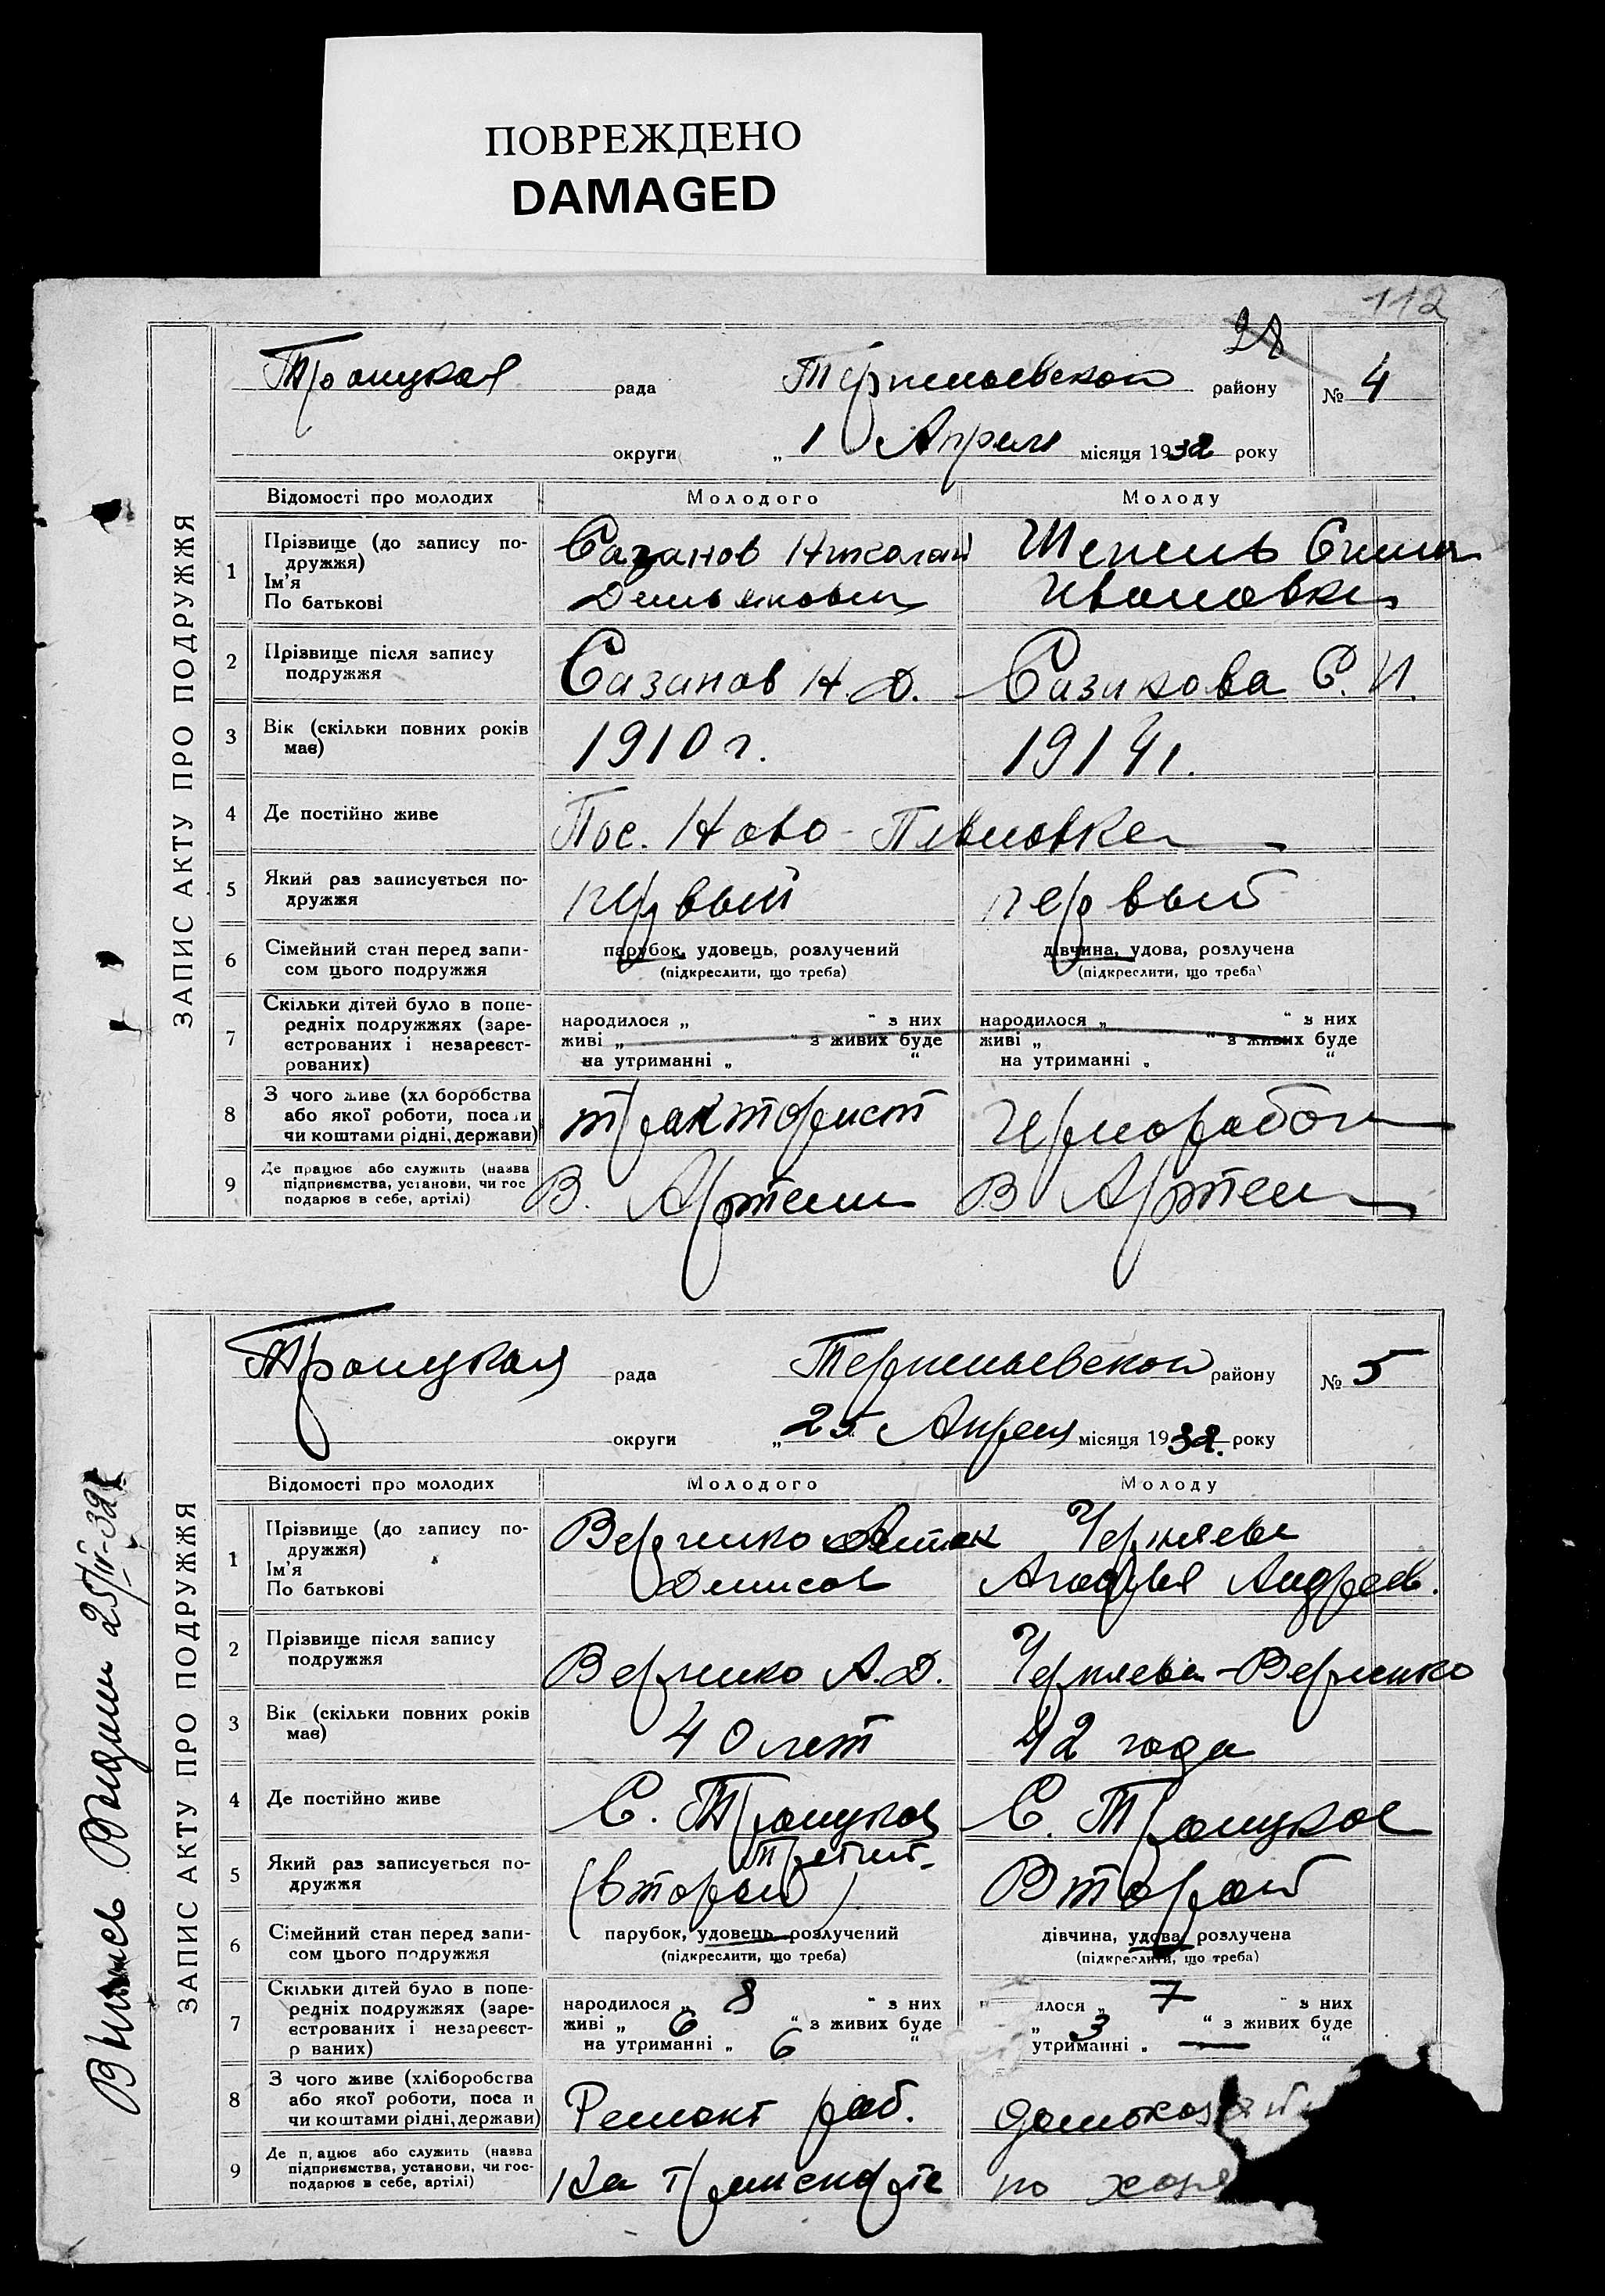 ПОВРЕЖДЕНО
DAMAGED
112
28
Троицкая рада района району № 4
округи „ 1 Апреля місяця 1932 року
ЗАПИС АКТУ ПРО ПОДРУЖЖЯ
Відомості про молодих Молодого Молоду
1 Прізвище (до запису подружжя) Ім'я По батькові
Сазанов Николай
Ивановна
2 Прізвище після запису подружжя
Сазанов Н. Д. Сазанова С. И.
3 Вік (скільки повних років має)
1910 г. 1914 г.
4 Де постійно живе
Пос. Ново-
5 Який раз записується подружжя
первый первый
6 Сімейний стан перед записом цього подружжя
парубок, удовець, розлучений дівчина, удова, розлучена
(підкреслити, що треба) (підкреслити, що треба)
7 Скільки дітей було в попередніх подружжях (зареєстрованих і незареєстрованих)
народилося „ “ з них народилося „ “ з них
живі „ “ з живих буде живі „ “ з живих буде
на утриманні „ “ на утриманні „ “
8 З чого живе (хл боробства або якої роботи, посади чи коштами рідні, держави)
тракторист
9 Де працює або служить (назва підприємства, установи, чи гос подарює в себе, артілі)
В. Артели В Артели
Троицкая рада району № 5
округи „ 25 Апреля місяця 1932. року
ЗАПИС АКТУ ПРО ПОДРУЖЖЯ
Відомості про молодих Молодого Молоду
1 Прізвище (до запису подружжя) Ім'я По батькові
Черняева
Денисов Агафья Андреев.
2 Прізвище після запису подружжя
А. Д.
3 Вік (скільки повних років має)
40 лет 42 года
4 Де постійно живе
С. Троицкое С. Троицкое
5 Який раз записується подружжя
Третий
(второй) Второй
6 Сімейний стан перед записом цього подружжя
парубок, удовець, розлучений дівчина, удова, розлучена
(підкреслити, що треба) (підкреслити, що треба)
7 Скільки дітей було в попередніх подружжях (зареєстрованих і незареєстр ваних)
народилося „ 8 “ з них илося „ 7 “ з них
живі „ 6 “ з живих буде „ 3 “ з живих буде
на утриманні „ 6 “ утриманні „ — “
8 З чого живе (хліборобства або якої роботи, поса и чи коштами рідні, держави)
Ремонт раб.
9 Де п ацює або служить (назва підприємства, установи, чи господарює в себе, артілі)
На транспорте по